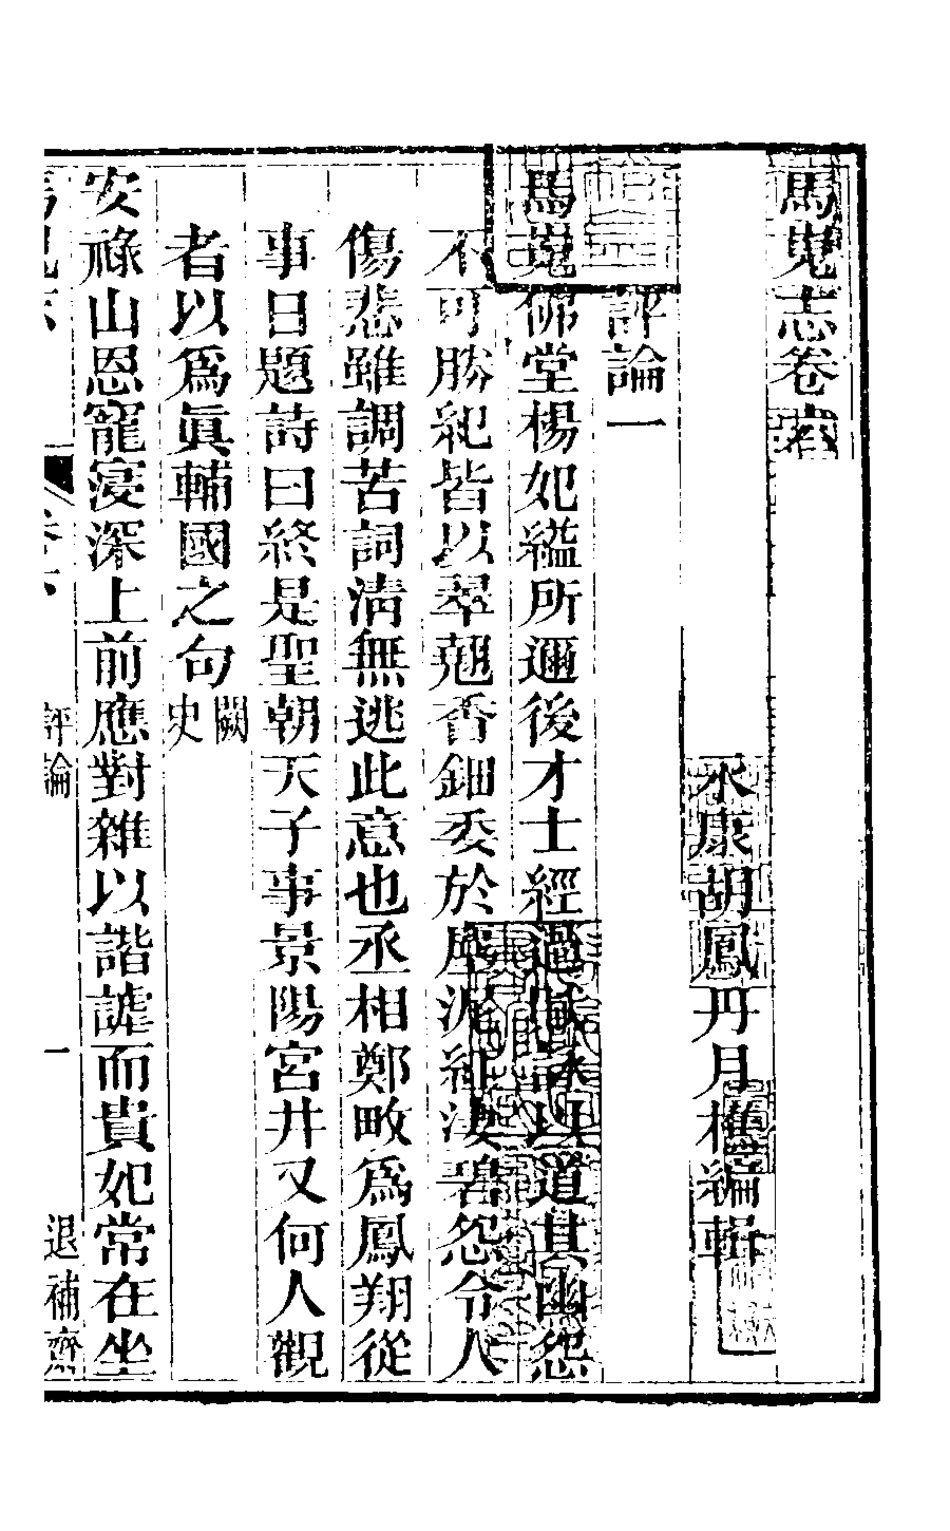 馬嵬志卷六
永康胡鳳丹月樵編輯
評論一
馬嵬佛堂楊妃縊所邇後才士經過賦詠以道其幽怨
不可勝紀皆以翠翹香鈿委於塵泥紅淒碧怨令人
傷悲雖調苦詞清無逃此意也丞相鄭畋爲鳳翔從
事日題詩曰終是聖朝天子事景陽宮井又何人觀
者以爲眞輔國之句闕史
安祿山恩寵寖深上前應對雜以諧謔而貴妃常在坐
評論 一 退補齋